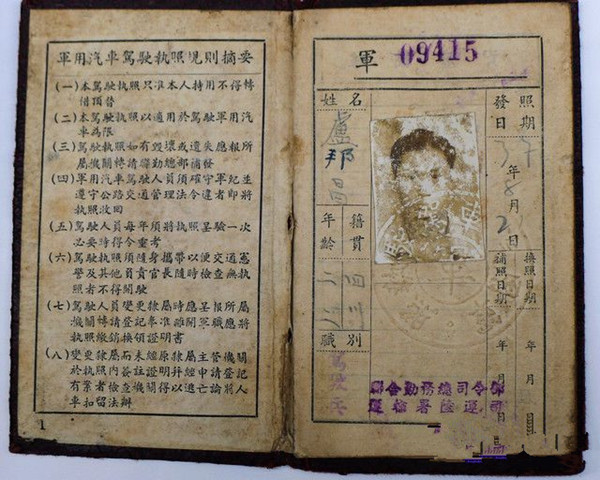 軍用汽車駕駛執照規則摘要
(一)本駕駛執照只准本人持用不得轉
借頂替
(二)本駕駛執照以適用於駕駛軍用汽
車為限
(三)駕駛執照如有毀壞或遺失應報所
屬機關轉請聯勤總部補發
(四)軍用汽車駕駛人員須確守軍紀並
遵守公路交通管理法令違者即將
執照收回
(五)駕駛人員每年須將執照呈驗一次
必要時得令重考
(六)駕駛執照須隨身攜帶以便交通憲
警及其他員責官長隨時檢查無執
照者不得開駛
(七)駕駛人員變更隸屬時應呈報所屬
機關轉請登記奉准離開軍職應將
執照繳銷換領證明書
(八)變更隸屬而未經原隸屬主管機關
於執照內簽註證明并經申請登記
有案者檢查機關得以逃亡論將人
車扣留法辦
1
軍 09415
姓名
盧邦昌
年齡
籍貫
四川
職別
發照日期
年8月2日
換照日期
補照日期
年 月 日
年 月 日
聯合勤務總司令部
運輸署陸運司